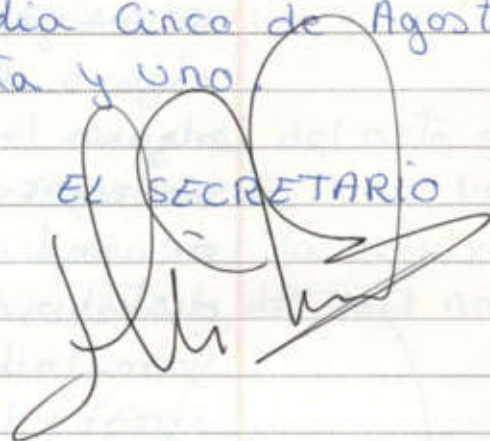 dia Cinco de Agost
ta y uno.
EL SECRETARIO